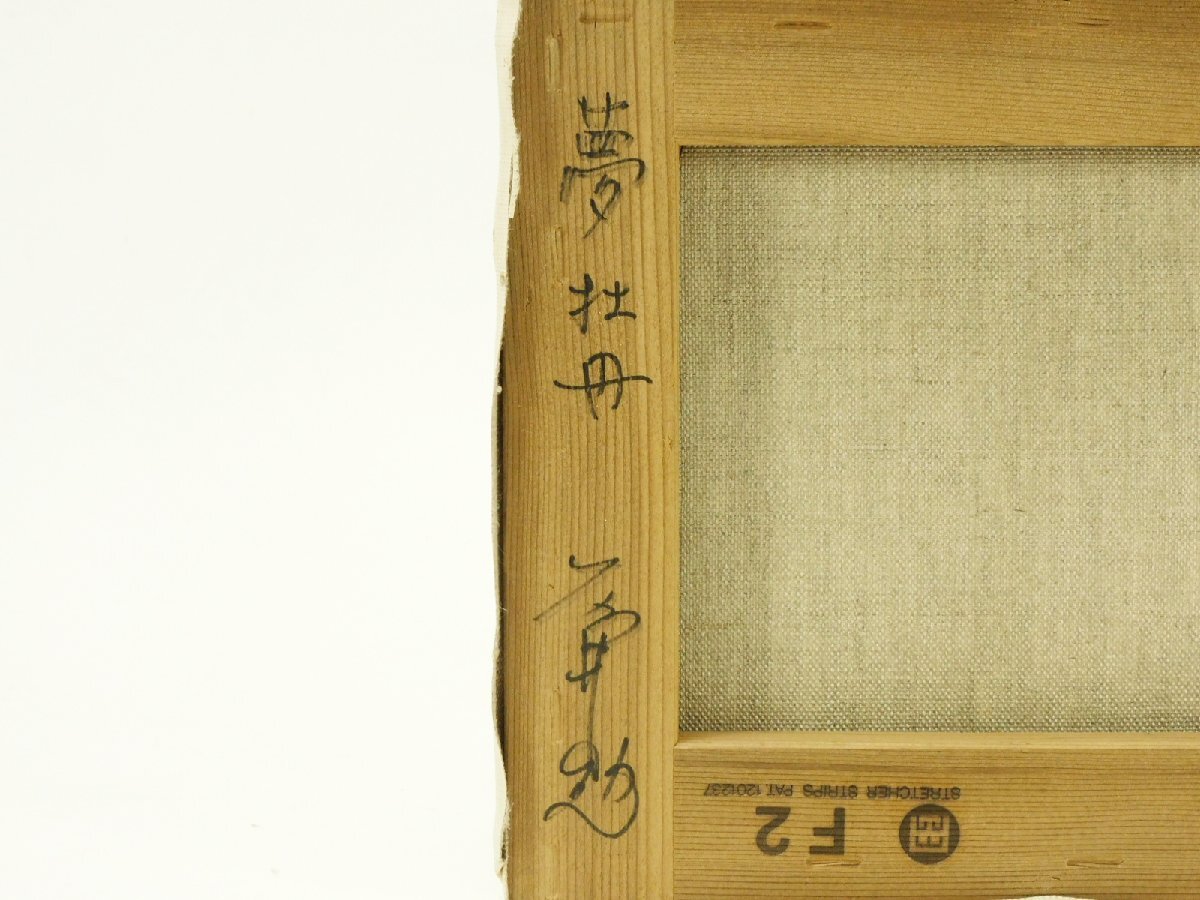 夢牡丹
勉
STRETCHER STRIPS PAT. 1201237
F2